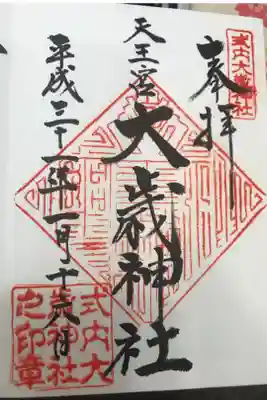 式内大歳神社
奉拝
天王宮
大歳神社
平成三十一年一月十六日
式内大
歳神社
之印章